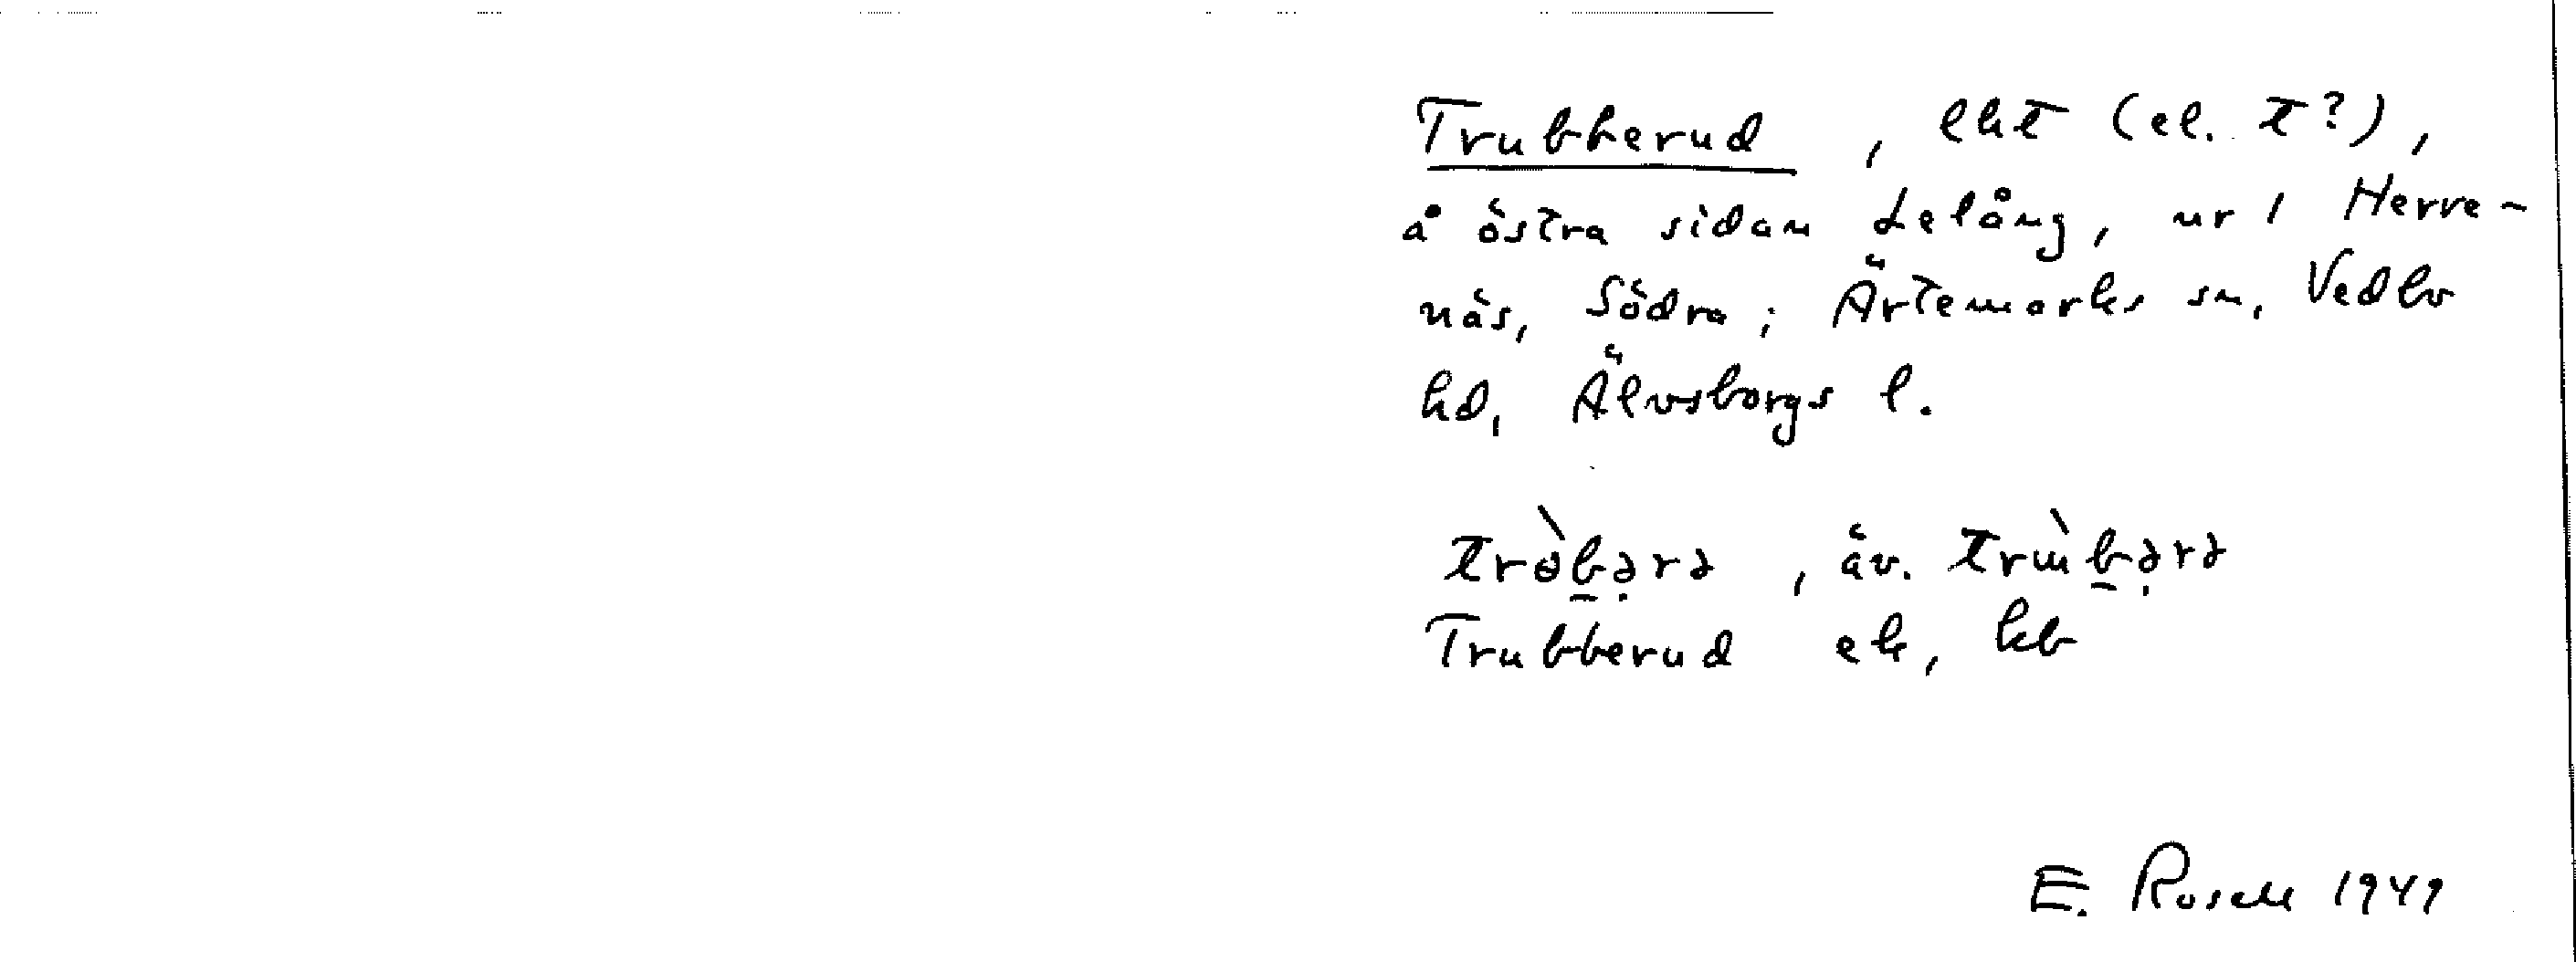 Trubberud, lht (el. t?),
å östra sidan Lelång, ur 1 Herre-
näs, Södra; Ärtemarks sn, Vedbo
hd, Älvsborgs l.
trɵ̀b̠ə̣rə, äv. trɯ̀b̠ə̣rə
Trubberud ek, kb
E. Rosell 1949